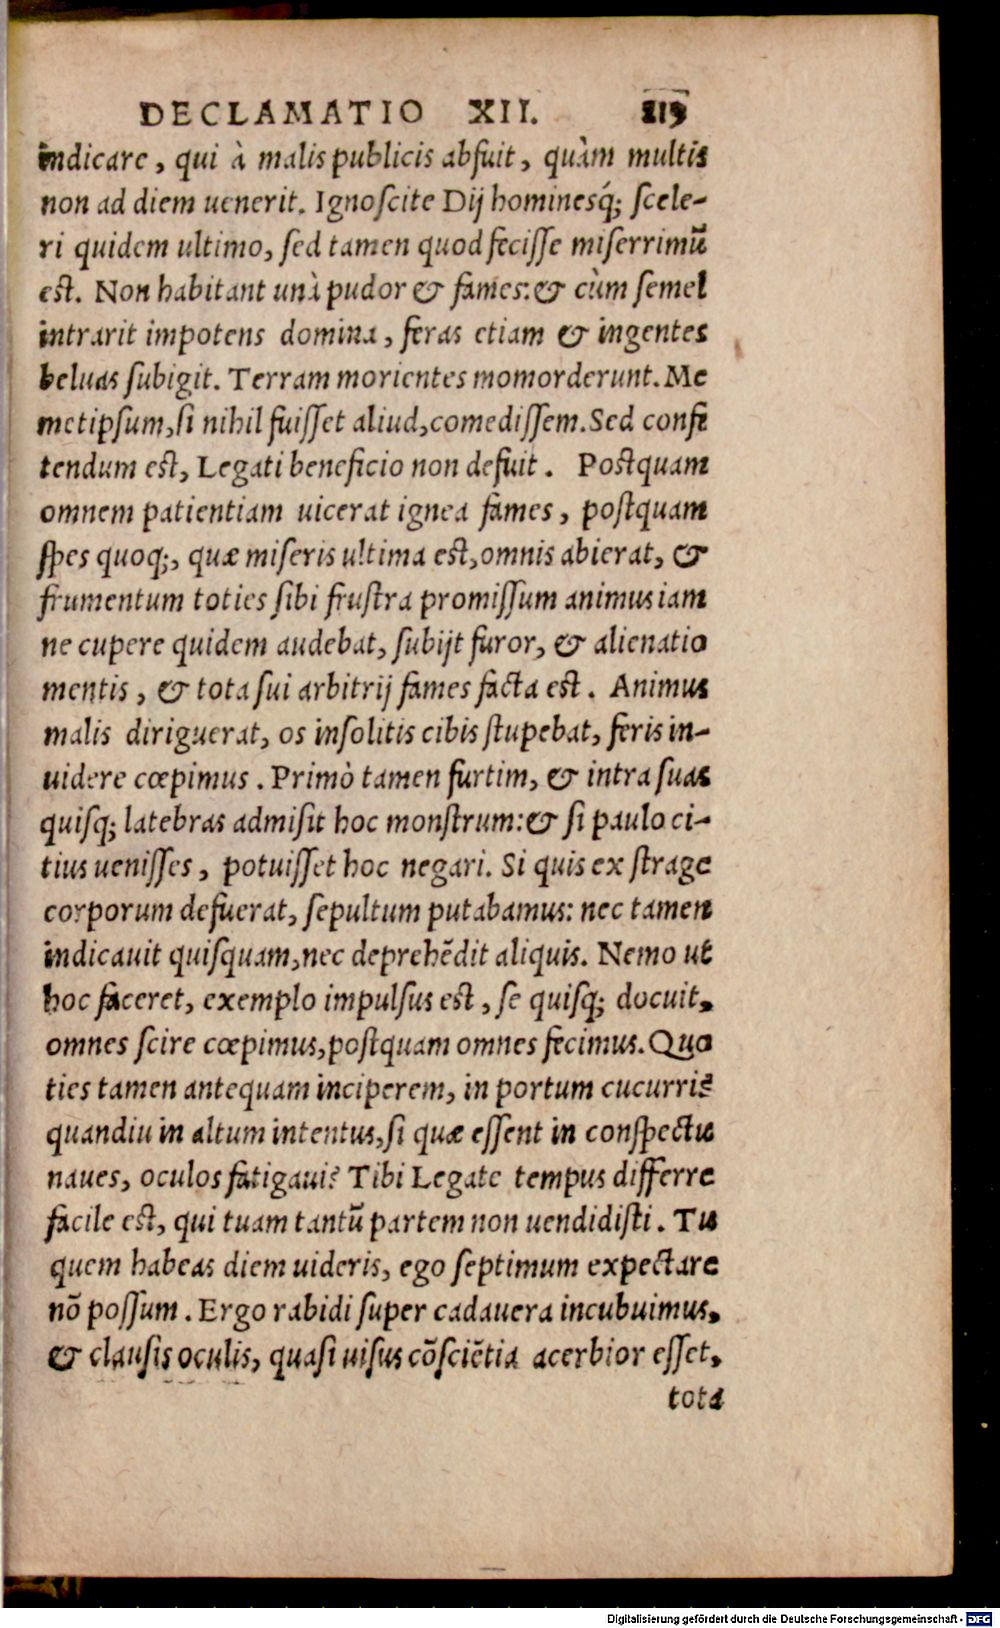 DECLAMATIO XII. 219
indicare, qui à malis publicis abfuit, quàm multis
non ad diem uenerit. Ignoscite Dij hominesq́; scele-
ri quidem ultimo, sed tamen quod fecisse miserrimũ
est. Non habitant unà pudor & fames: & cùm semel
intrarit impotens domina, feras etiam & ingentes
beluas subigit. Terram morientes momorderunt. Me
metipsum, si nihil fuisset aliud, comedissem. Sed confi
tendum est, Legati beneficio non defuit. Postquam
omnem patientiam uicerat ignea fames, postquam
spes quoq;, quæ miseris ultima est, omnis abierat, &
frumentum toties sibi frustra promissum animus iam
ne cupere quidem audebat, subijt furor, & alienatio
mentis, & tota sui arbitrij fames facta est. Animus
malis diriguerat, os insolitis cibis stupebat, feris in-
uidere cœpimus. Primò tamen furtim, & intra suas
quisq; latebras admisit hoc monstrum: & si paulo ci-
tius uenisses, potuisset hoc negari. Si quis ex strage
corporum defuerat, sepultum putabamus: nec tamen
indicauit quisquam, nec deprehẽdit aliquis. Nemo ut
hoc faceret, exemplo impulsus est, se quisq; docuit,
omnes scire cœpimus, postquam omnes fecimus. Quo
ties tamen antequam inciperem, in portum cucurri?
quandiu in altum intentus, si quæ essent in conspectu
naues, oculos fatigaui? Tibi Legate tempus differre
facile est, qui tuam tantũ partem non uendidisti. Tu
quem habeas diem uideris, ego septimum expectare
nõ possum. Ergo rabidi super cadauera incubuimus,
& clausis oculis, quasi uisus cõsciẽtia acerbior esset,
tota
Digitalisierung gefördert durch die Deutsche Forschungsgemeinschaft - DFG